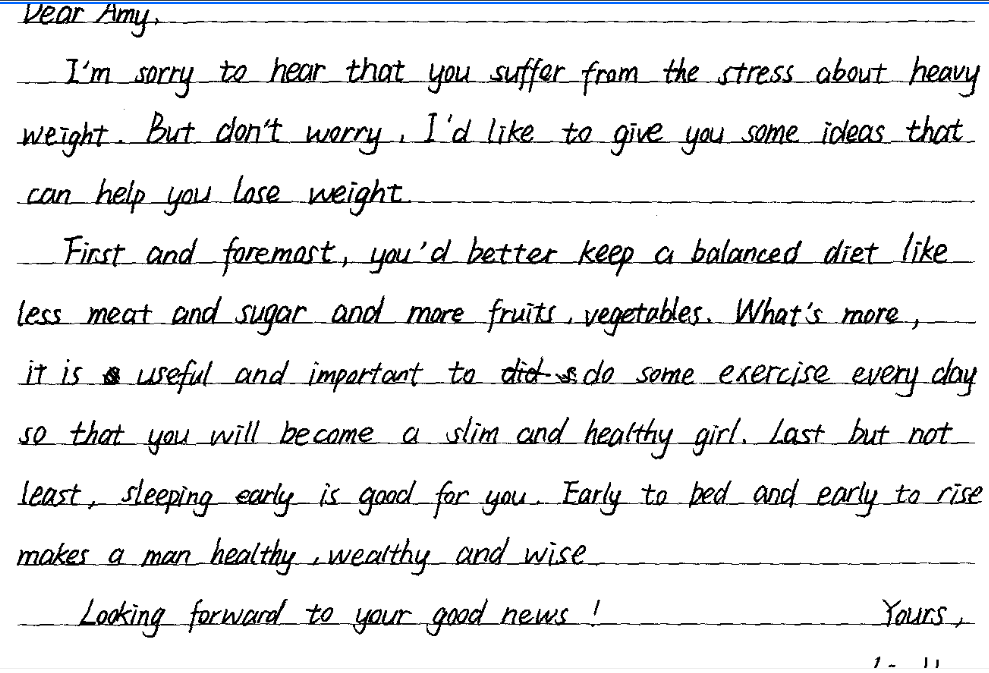 Dear Amy,
I'm sorry to hear that you suffer from the stress about heavy
weight. But don't worry, I'd like to give you some ideas that
can help you lose weight.
First and foremost, you'd better keep a balanced diet like
less meat and sugar and more fruits, vegetables. What's more,
it is useful and important to do some exercise every day
so that you will become a slim and healthy girl. Last but not
least, sleeping early is good for you. Early to bed and early to rise
makes a man healthy, wealthy and wise
Looking forward to your good news! Yours,